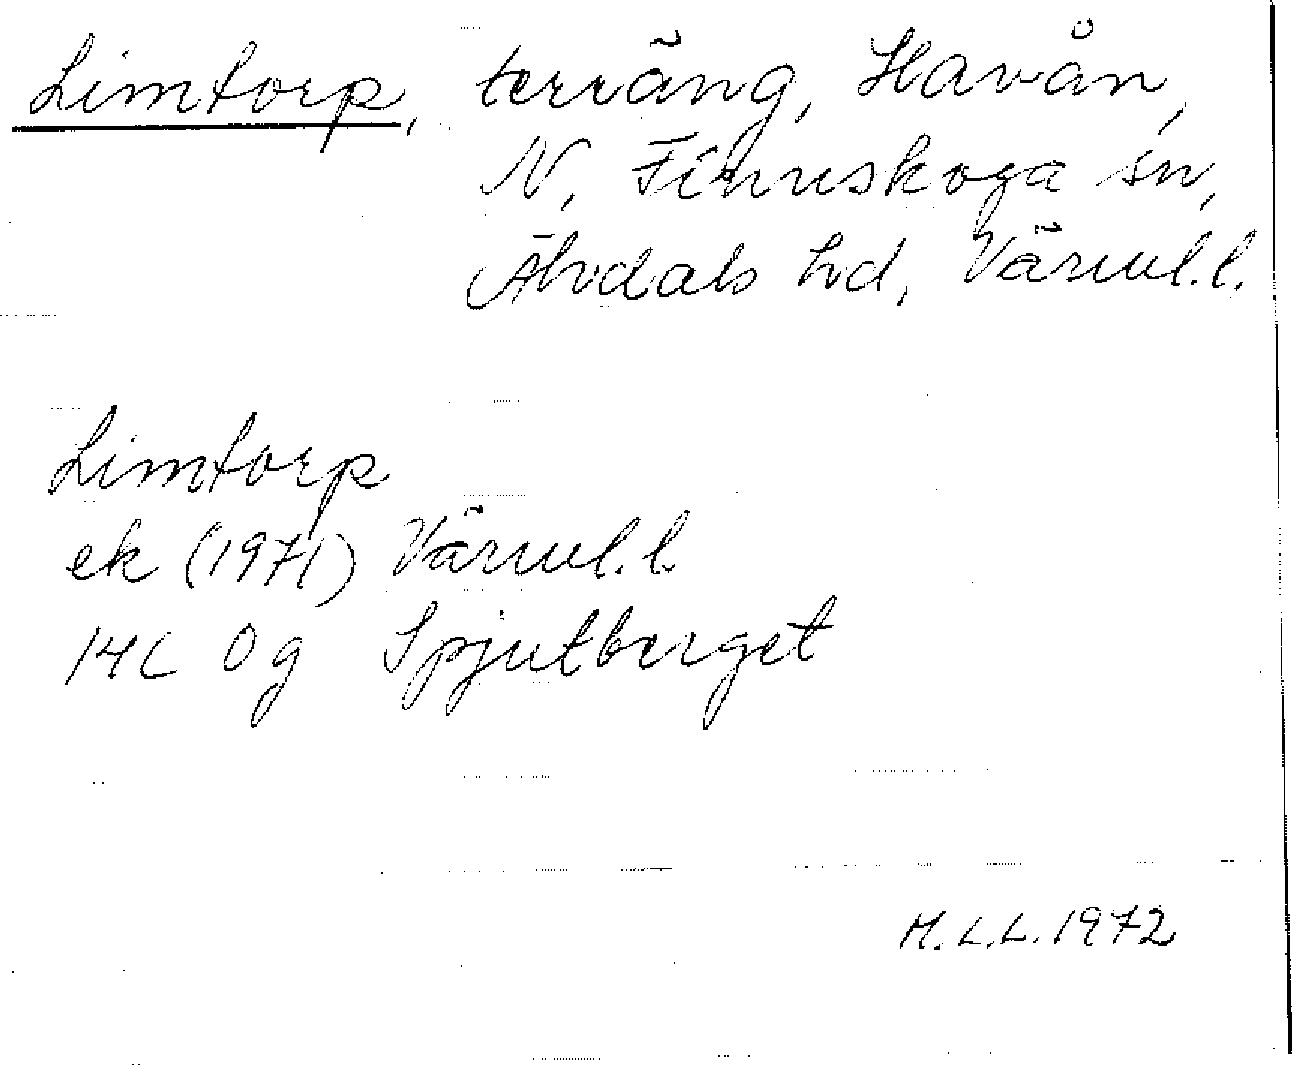 Limtorp, terräng, Havån,
N. Finnskoga sn,
Älvdals hd, Värml. l.
Limtorp
ek (1971) Värml. l.
14C 0g Spjutberget
M.L.L. 1972